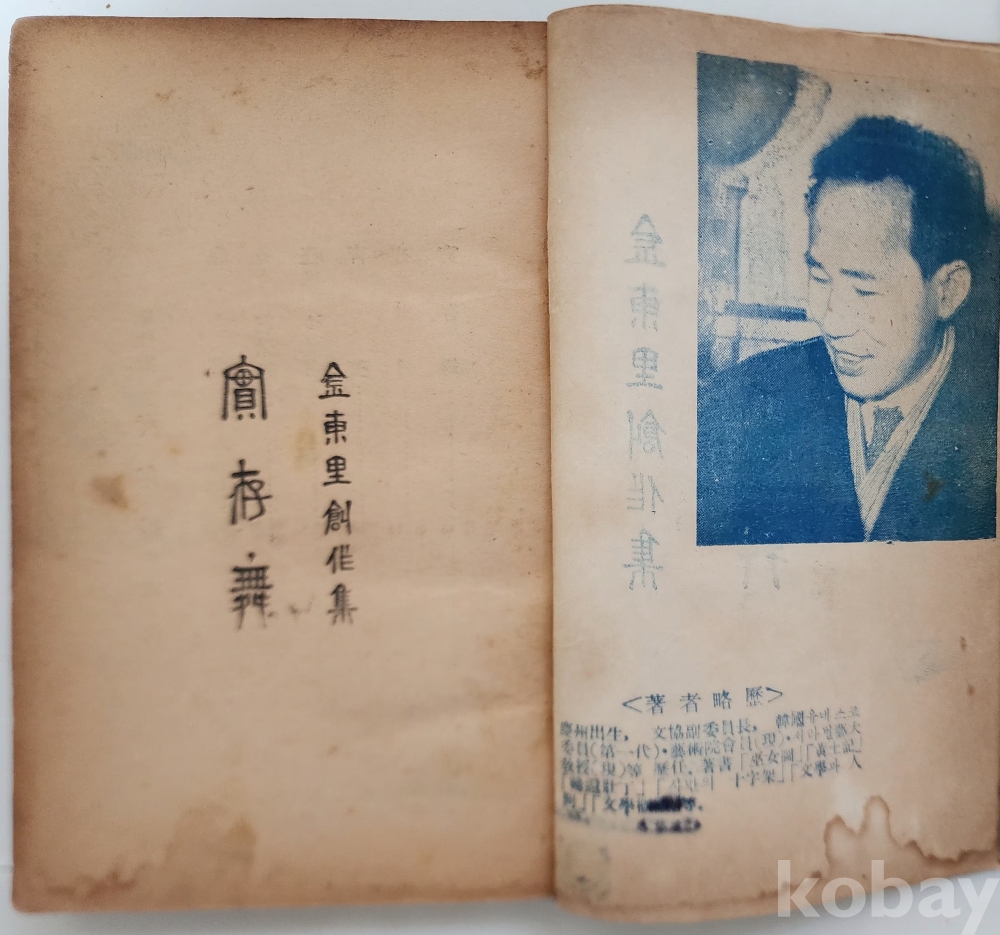 金東里創作集
實存舞
金東里創作集
<著者略歷>
慶州出生, 文協副委員長, 韓國유네스코
委員(第一代)·藝術院會員(現)·서라벌藝大
敎授(現)等 歷任、著書「巫女圖」「黃土記」
「歸還壯丁」「사반의 十字架」「文學과 人
間」「文學 等.
kobay